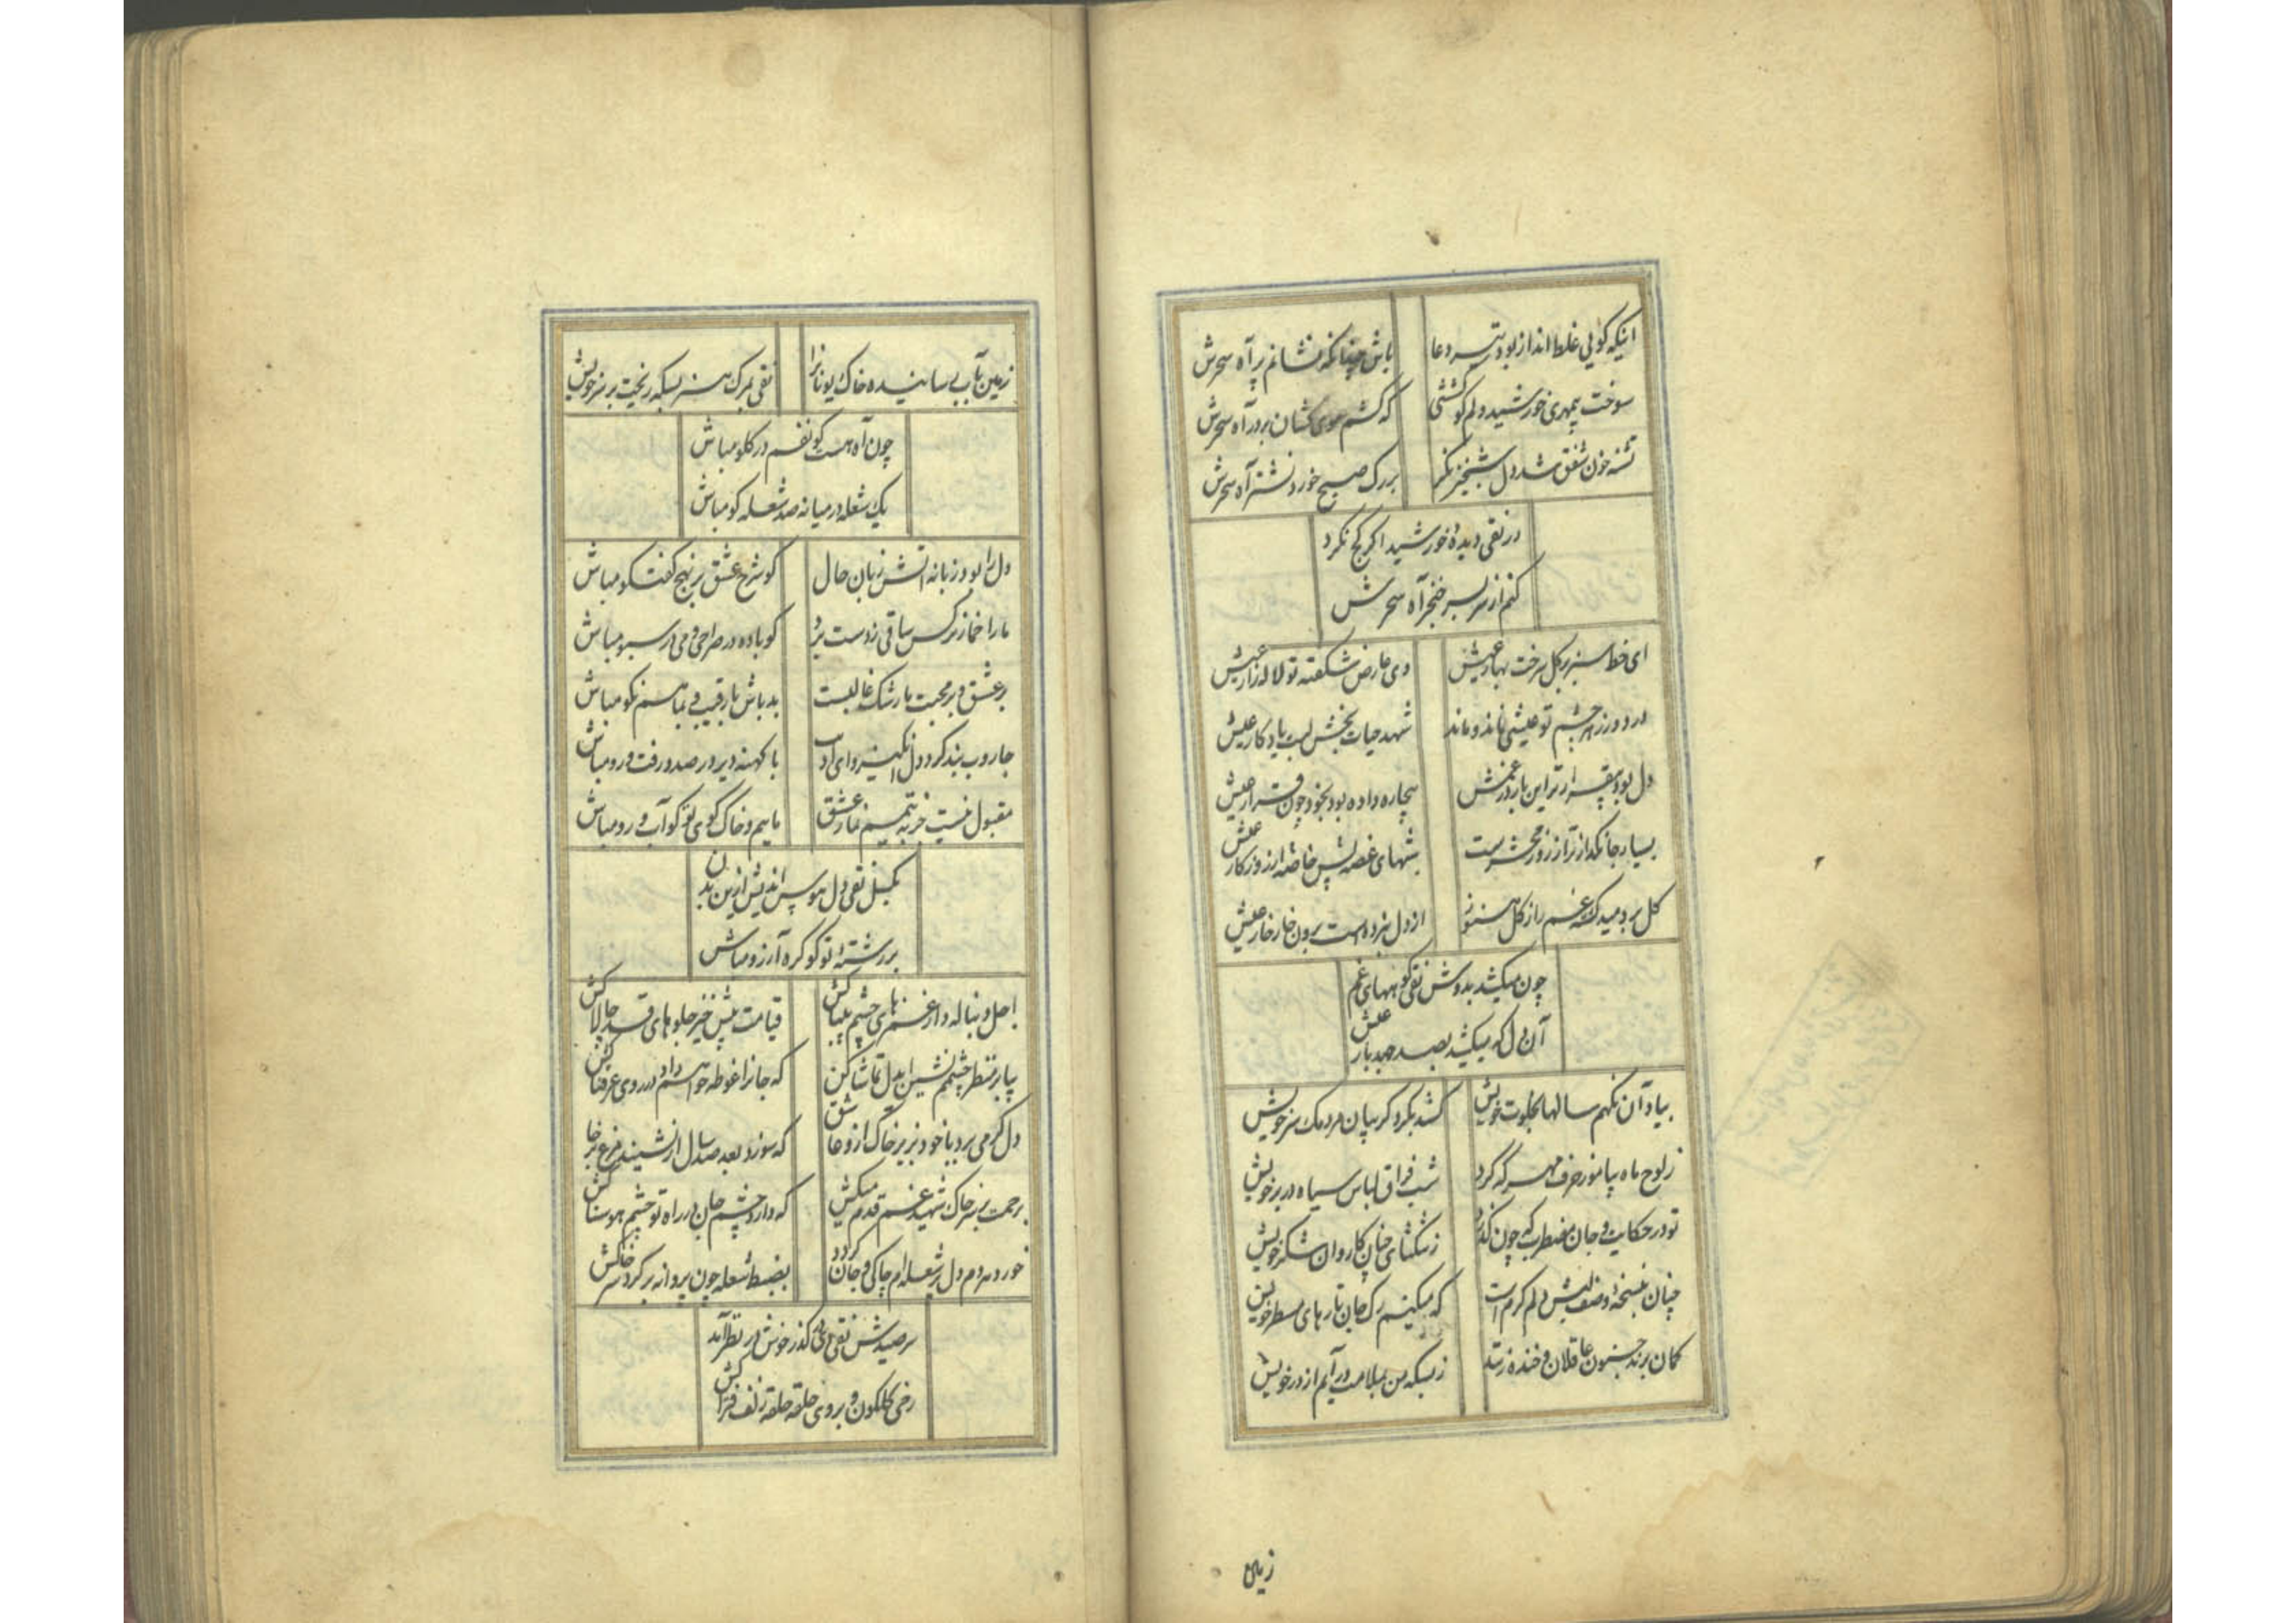 اینکه گویی غلط انداز بود تیر دعا
باش چنانکه نشانم پر آه سحرش
سوخت بیمهری خورشید دلم کو کششی
که کشم موی کشان بر در آه سحرش
تشنه خون شفق شد دل شبخیز نگر
بر رک صبح خورد نشتر آه سحرش
در نقی دیدهٔ خورشید اگر کج نگرد
کنم از سر بسر خنجر آه سحرش
ای خط سبز بر گل رخت بهار عیش
وی عارض شکفته تو لاله زار عیش
در دور زهر چشم تو عیشی نماند و ماند
شهد حیات بخش لبت یادگار عیش
دل بود بیقرارتر این بار در غمش
بیچاره داده بود بخود چون قرار عیش
بسیار جانگدازتر از روز محشر است
شبهای غصه پس خاصه از روزگار عیش
گل بر دمید غم راز گل هنوز
از دل نبرده است برون خار خار عیش
چون میکشد بدوش نقی کوههای غم
آن دل که میکشید بصد جهد بار عیش
بیاد آن نگهم سالها بخلوت خویش
کشد بگرد گریبان مردمک سر خویش
ز لوح ماه بیاموز حرف مهر که کرد
شب فراق لباس سیاه در بر خویش
تو در حکایت و جان مضطرب که چون گذرد
ز تنگنای چنان کاروان شکر خویش
چنان بنسخهٔ وصف لبش دلم گرم است
که میکنم رک جان تارهای مسطر خویش
گمان برند جنون عاقلان و خنده زنند
ز بسکه من بملامت در آیم از در خویش
زمین
زمین بآب رسانیده خاک یونانرا
نقی بمرک هنر بسکه ریخت بر سر خویش
چون آه هست گو نفسم در گلو مباش
یک شعله در میانه صد شعله گو مباش
دل را بود زبانه آتش زبان حال
گو شرح عشق بر نهج گفتگو مباش
ما را خمار نرگس ساقی ز دست برد
گو باده در صراحی و می در سبو مباش
بر عشق و بر محبت ما رشک غالبست
بد باش با رقیب و بما هم نکو مباش
با کهنه دیر در صدد رفت و رو مباش
مقبول نیست جز به تیمم نماز عشق
ماییم و خاک کوی تو گو آب رو مباش
بگسل نقی دل هوس اندیش ازین بدن
بر رشته تو گو گره آرزو مباش
اجل دنباله دار غمزهای چشم بیباکش
قیامت پیش خیز جلوهای قد چالاکش
بیا بر منظر چشمم نشین ای دل تماشا کن
که جانرا غوطه خواهم داد در روی عرقناکش
دل گرمی برد با خود بزیر خاک ازو عاشق
که سوزد بعد صد سال ار نشیند مرغ بر خاکش
برحمت بر سر خاک شهید غم قدم میکش
که دارد چشم جان در راه تو چشم هوسناکش
خورد هر دم دل پر شعله‌ام چاکی و جان گردد
بضبط شعله چون پروانه بر گرد سر چاکش
سر صیدش نقی وقتی گذر خوش در نظر آمد
رخی گلگون و بر وی حلقه حلقه زلف فتراکش